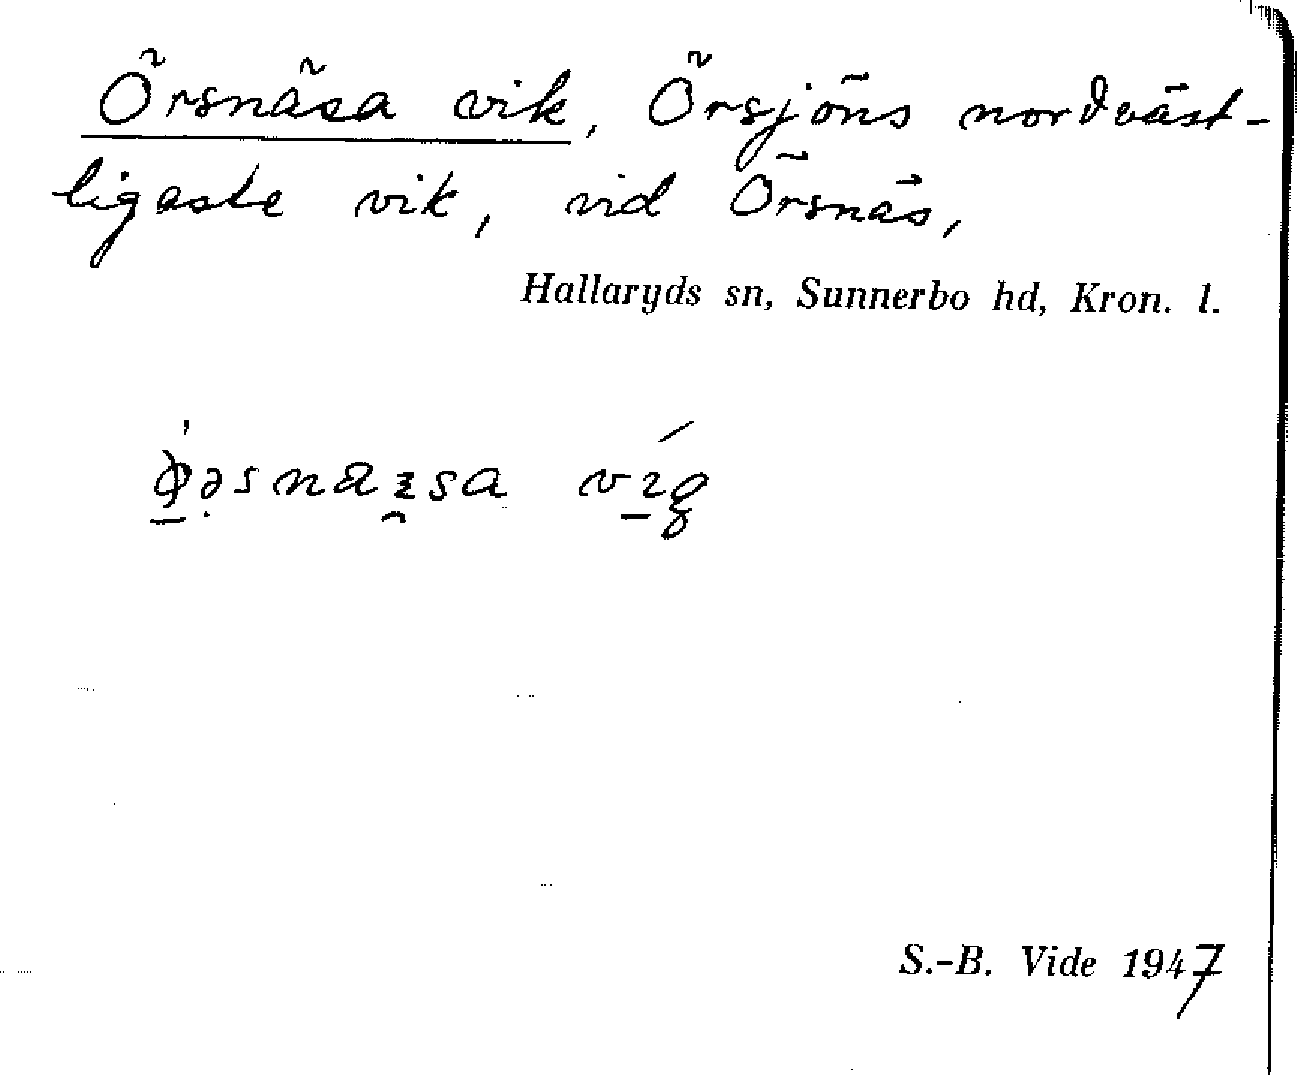 Örsnäsa vik, Örsjöns nordväst-
ligaste vik, vid Örsnäs,
Hallaryds sn, Sunnerbo hd, Kron. l.
S.-B. Vide 1947